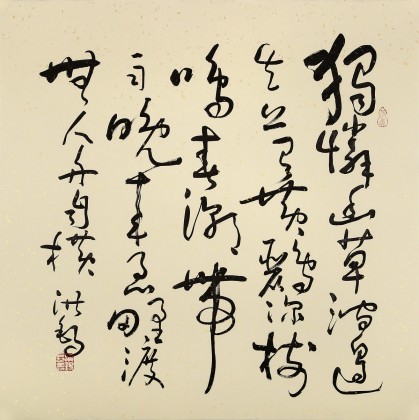 獨憐幽草澗邊
生上有黃鸝深樹
鳴春潮帶
雨晚来急野渡
無人舟自横 洪